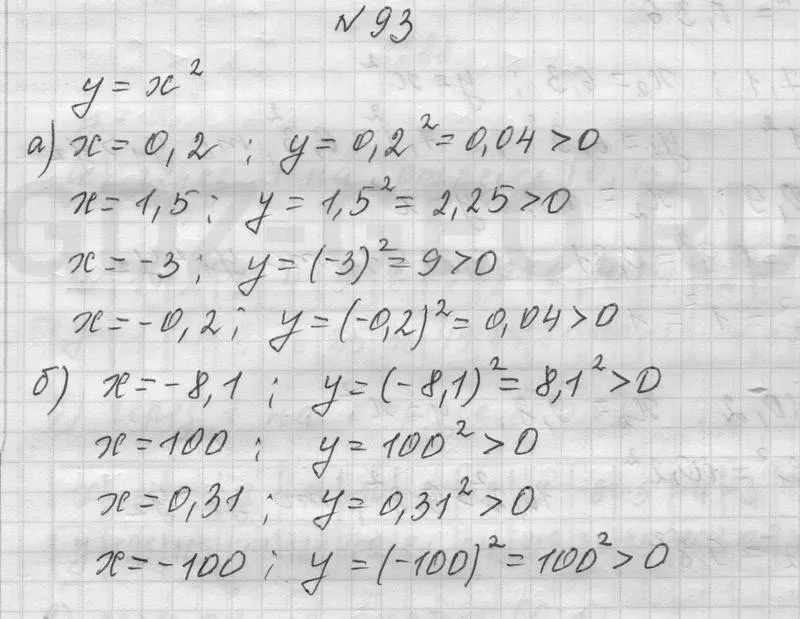 № 93
y = x²
а) x = 0,2 ; y = 0,2² = 0,04 > 0
x = 1,5 ; y = 1,5² = 2,25 > 0
x = -3 ; y = (-3)² = 9 > 0
x = -0,2 ; y = (-0,2)² = 0,04 > 0
б) x = -8,1 ; y = (-8,1)² = 8,1² > 0
x = 100 ; y = 100² > 0
x = 0,31 ; y = 0,31² > 0
x = -100 ; y = (-100)² = 100² > 0